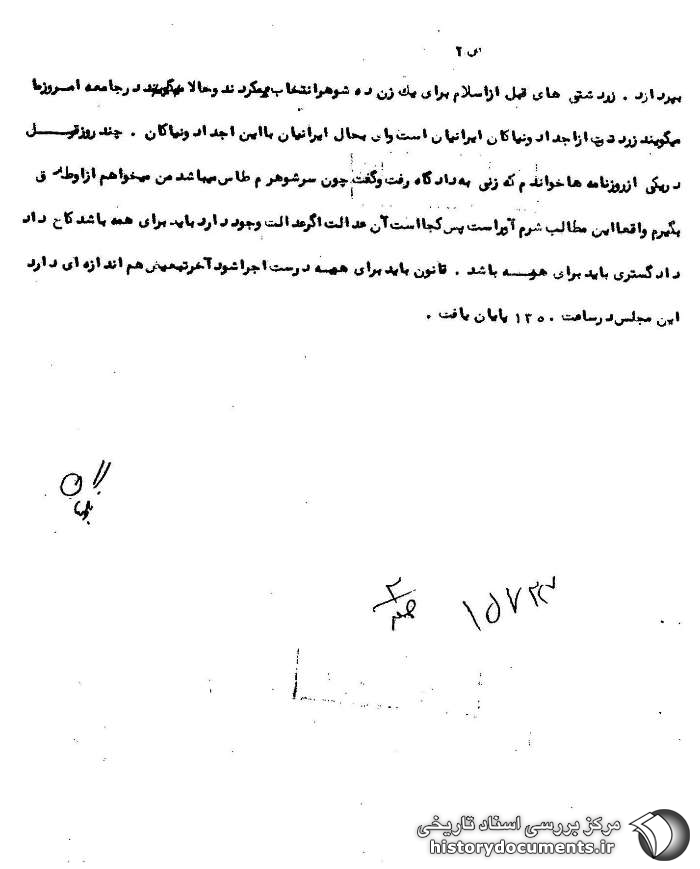 ص ۲
بپردازد . زردشتی های قبل ازاسلام برای یك زن ده شوهرانتخاب میکردند وحالا میگویند درجامعه امروزما
میگویند زردشت ازاجداد ونیاکان ایرانیان است وای بحال ایرانیان بااین اجداد ونیاکان . چند روزقبل
دریکی ازروزنامه ها خواندم که زنی به دادگاه رفت وگفت چون سرشوهرم طاس میباشد من میخواهم ازاوطلاق
بگیرم واقعااین مطالب شرم آوراست پس کجااست آن عدالت اگرعدالت وجود دارد باید برای همه باشد کاخ داد
دادگستری باید برای همه باشد . قانون باید برای همه درست اجراشود آخرتبعیض هم اندازه ای دارد
این مجلس درساعت ۱۲۵۰ پایان یافت .
مرکز بررسی اسناد تاریخی
historydocuments.ir